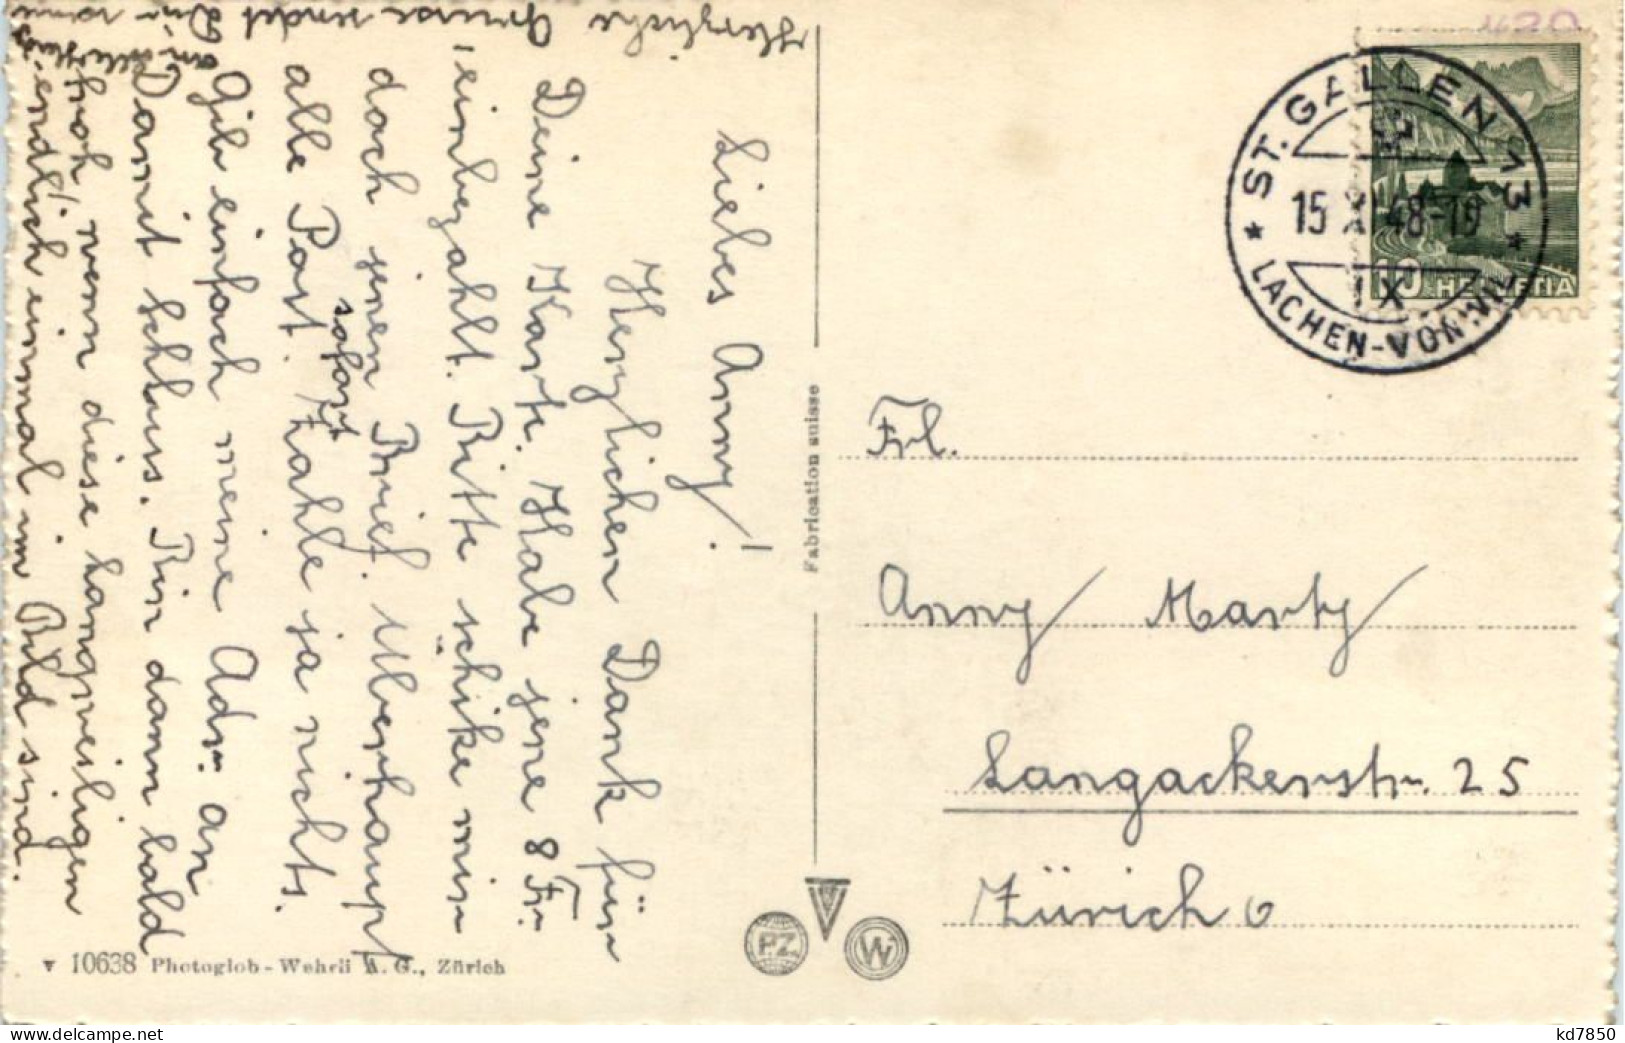 Liebes Anny!
Herzlichen Dank für
Deine Karte. Habe jene 8 Fr.
einbezahlt. Bitte schike mir
doch jenen Brief. Uberhaupt
alle Post. Zahle ja nichts.
sofort
Gib einfach meine Adr. an
Damit Schluss. Bin dann bald
froh wenn diese langweiligen
endlich einmal im Bild sind.
Herzliche Grüsse sendet Dir
Fabrication suisse
10638 Photoglob-Wehrli A. G., Zürich
P.Z.
W
ST. GALLEN 13
15 XI 48-19
IX
LACHEN-VONWIL
10 HELVETIA
Frl.
Anny Marty
Langackerstr. 25
Zürich 6
kd7850